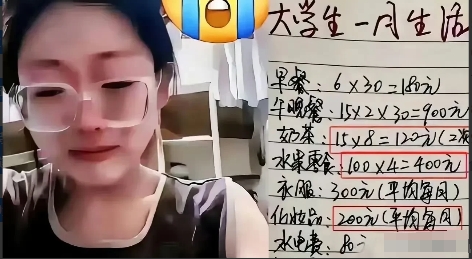 大学生一月生活
早餐：6×30=180元
午晚餐：15×2×30=900元
奶茶：15×8=120元(二次
水果零食：100×4=400元
衣服：300元(平均每月)
化妆品：200元(平均每月)
水电费：80元